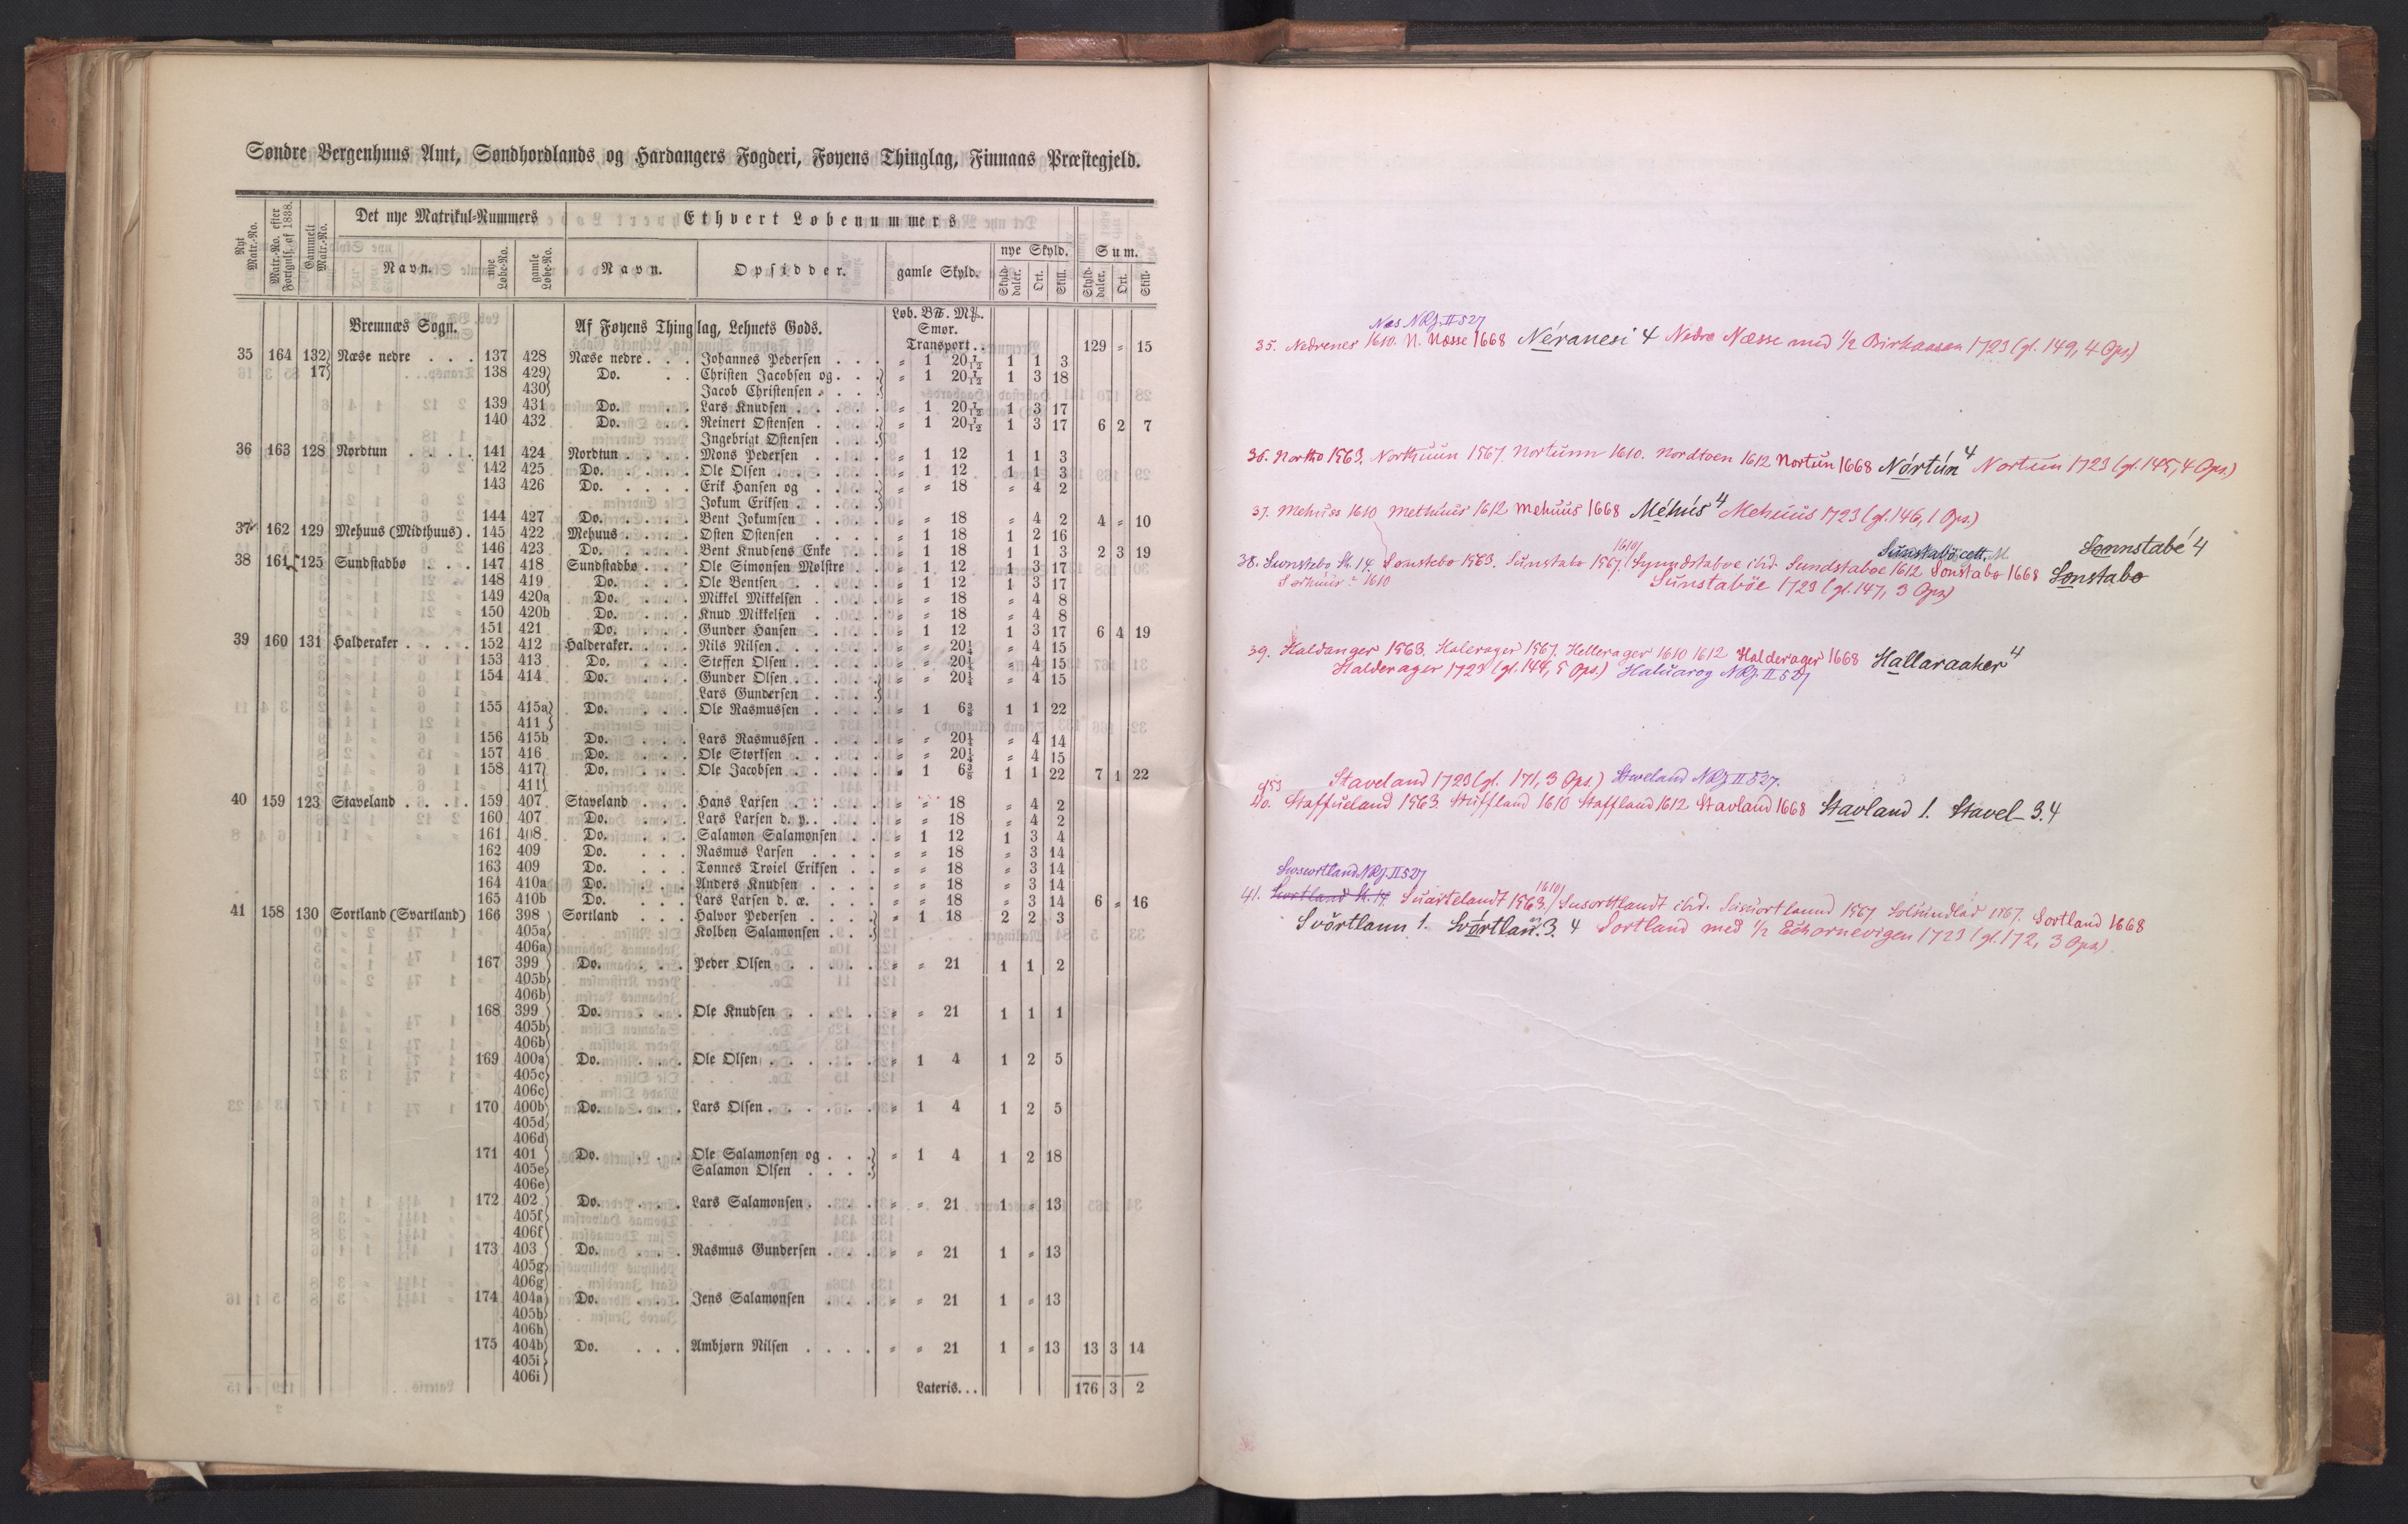 Søndre Bergenhuus Amt, Søndhordlands og Hardangers Fogderi, Føyens Thinglag, Finnaas Præstegjeld.
Nyt Matr.-No. Matr.-No. efter Fortegnels. af 1838. Gammelt Matr.-No. Det nye Matrikul-Nummers Ethvert Løbenummers
Navn. nye Løbe-No. gamle Løbe-No. Navn. Opsidder. gamle Skyld. nye Skyld. Sum.
Skyld-daler. Ort. Skill. Skyld-daler. Ort. Skill.
Bremnæs Sogn. Af Føyens Thinglag, Lehnets Gods. Løb. Smør.
Transport.. 129 " 15
35 164 132) Næse nedre . . . 137 428 Næse nedre . . . Johannes Pedersen . . . " 1 20 7/12 1 1 3
17) 138 429) Do. . . Christen Jacobsen og . . .} " 1 20 7/12 1 3 18
430) Jacob Christensen . . . .}
139 431 Do. . . Lars Knudsen . . . . . " 1 20 7/12 1 3 17
140 432 Do. . . Reinert Østensen . . . .} " 1 20 7/12 1 3 17 6 2 7
Ingebrigt Østensen . . .}
36 163 128 Nordtun . . . . 141 424 Nordtun . . . . Mons Pedersen . . . . . " 1 12 1 1 3
142 425 Do. . . . . Ole Olsen . . . . . . " 1 12 1 1 3
143 426 Do. . . . . Erik Hansen og . . . .} " " 18 " 4 2
Jokum Eriksen . . . . .}
144 427 Do. . . . . Bent Jokumsen . . . . " " 18 " 4 2 4 " 10
37 162 129 Mehuus (Midthuus) . 145 422 Mehuus . . . . Østen Østensen . . . . " 1 18 1 2 16
146 423 Do. . . . . Bent Knudsens Enke . . . " 1 18 1 1 3 2 3 19
38 161 125 Sundstadbø . . . 147 418 Sundstadbø . . . Ole Simonsen Mølstre . . . " 1 12 1 3 17
148 419 Do. . . . Ole Bentsen . . . . . " 1 12 1 3 17
149 420a Do. . . . Mikkel Mikkelsen . . . . " " 18 " 4 8
150 420b Do. . . . Knud Mikkelsen . . . . " " 18 " 4 8
151 421 Do. . . . Gunder Hansen . . . . " 1 12 1 3 17 6 4 19
39 160 131 Halderaker . . . . 152 412 Halderaker. . . . Nils Nilsen . . . . . . " " 20 1/4 " 4 15
153 413 Do. . . . Steffen Olsen . . . . . " " 20 1/4 " 4 15
154 414 Do. . . . Gunder Olsen . . . . .} " " 20 1/4 " 4 15
Lars Gundersen . . . .}
155 415a) Do. . . . Ole Rasmussen . . . . " 1 6 3/8 1 1 22
411 )
156 415b Do. . . . Lars Rasmussen . . . . " " 20 1/4 " 4 14
157 416 Do. . . . Ole Størksen . . . . . " " 20 1/4 " 4 15
158 417) Do. . . . Ole Jacobsen . . . . . " 1 6 3/8 1 1 22 7 1 22
411)
40 159 123 Staveland . . . . 159 407 Staveland . . . Hans Larsen . . . . . " " 18 " 4 2
160 407 Do. . . . Lars Larsen d. y. . . . . " " 18 " 4 2
161 408 Do. . . . Salamon Salamonsen . . " 1 12 1 3 4
162 409 Do. . . . Rasmus Larsen . . . . " " 18 " 3 14
163 409 Do. . . . Tønnes Trøiel Eriksen . . " " 18 " 3 14
164 410a Do. . . . Anders Knudsen . . . . " " 18 " 3 14
165 410b Do. . . . Lars Larsen d. æ. . . . " " 18 " 3 14 6 " 16
41 158 130 Sortland (Svartland) 166 398 ) Sortland . . . Halvor Pedersen . . . .} " 1 18 2 2 3
405a) Kolben Salamonsen . . .}
406a)
167 399 ) Do. . . . Peder Olsen . . . . . " " 21 1 1 2
405b)
406b)
168 399 ) Do. . . . Ole Knudsen . . . . . " " 21 1 1 1
405b)
406b)
169 400a) Do. . . . Ole Olsen . . . . . . " 1 4 1 2 5
405c)
406c)
170 400b) Do. . . . Lars Olsen . . . . . . " 1 4 1 2 5
405d)
406d)
171 401 ) Do. . . . Ole Salamonsen og . . .} " 1 4 1 2 18
405e) Salamon Olsen . . . .}
406e)
172 402 ) Do. . . . Lars Salamonsen . . . . " " 21 1 " 13
405f)
406f)
173 403 ) Do. . . . Rasmus Gundersen . . . " " 21 1 " 13
405g)
406g)
174 404a) Do. . . . Jens Salamonsen . . . " " 21 1 " 13
405h)
406h)
175 404b) Do. . . . Ambjørn Nilsen . . . . " " 21 1 " 13 13 3 14
405i)
406i)
Lateris... 176 3 2
Næs NRJ. II 527
35. Nedrenes 1610. N. Næsse 1668 Néranesi 4 Nedre Næsse med 1/2 Birkaasen 1723 (gl. 149, 4 Ops.)
36. Northo 1563. Northuun 1567. Nortunn 1610. Nordtoen 1612 Nortun 1668 Nórtún 4 Nortun 1723 (gl. 145, 4 Ops.)
37. Mehuss 1610 Methuus 1612 Mehuus 1668 Méhús 4 Mehuus 1723 (gl. 146, 1 Ops.)
Sunstabø cett. M. Sønnstabé 4
38. Sunstebo St. 14. Sønstebo 1563. Sunstabo 1567. /1610/ Synndstaboe ibd. Sundstaboe 1612 Sonstabo 1668 Sønstabø
1610 Sunstabøe 1723 (gl. 147, 3 Ops.)
39. Haldanger 1563. Halerager 1567. Hellerager 1610 1612 Halderager 1668 Hallaraaker 4
Halderager 1723 (gl. 144, 5 Ops.) Haluarog NRJ. II 527
Staveland 1723 (gl. 171, 3 Ops.) Stweland NRJ II 527.
Do. Staffueland 1563. Stuffland 1610 Staffland 1612 Stavland 1668 Stavland 1. Stavel- 3.4
Swswrtland NRJ. II 527
41. Sortland St. 14. Suartelandt 1563. /1610/ Susorttlandt ibd. Susuortlannd 1567 1567. Sortland 1668
Svórtlann 1. Svórtlan. 3. 4 Sortland med 1/2 Echornevigen 1723 (gl. 172, 3 Ops.)